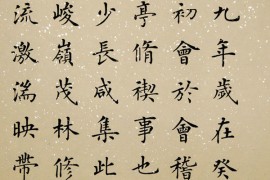 九年歲在癸
初會於會稽
亭脩禊事也
少長咸集此
峻嶺茂林修
流激湍映帶